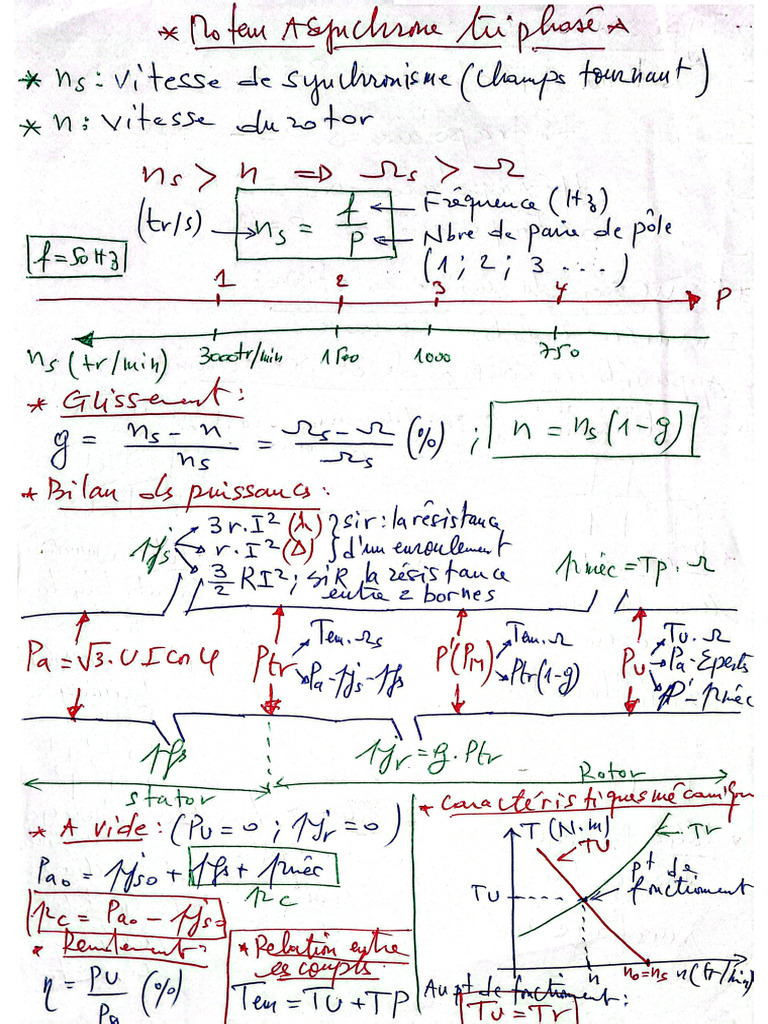 * Moteur Asynchrone triphasé *
* ns : vitesse de synchronisme (champs tournant)
* n : vitesse du rotor
ns > n ⇒ Ωs > Ω
(tr/s) → ns = f/P
f ← Fréquence (Hz)
P ← Nbre de paire de pôle
(1 ; 2 ; 3 ....)
f = 50Hz
1 2 3 4 P
ns (tr/min) 3000tr/min 1500 1000 750
* Glissement :
g = (ns - n)/ns = (Ωs - Ω)/Ωs (%) ; n = ns(1-g)
* Bilan ds puissancs :
pjs
3r.I² (λ) } si r : la résistance
r.I² (Δ) } d'un enroulement
3/2 RI² ; si R la résistance
entre 2 bornes
pméc = Tp . Ω
Pa = √3.UI cos φ
Ptr
Tem.Ωs
Pa - pjs - pfs
P'(PM)
Tem.Ω
Ptr(1-g)
Pu
Tu.Ω
Pa - Σperts
P' - pméc
pfs
pjr = g.Ptr
stator
Rotor
* A vide : (Pu = 0 ; pjr = 0)
Pa0 = pjs0 + pfs + pméc
pc
pc = Pa0 - pjs0
* Rendement :
η = Pu/Pa (%)
* Relation entre
es coupls
Tem = TU + TP
* Caractéristiques mécaniqu
T (N.m)
TU
Tr
pt de
fonctionnement
TU
n n0=ns n(tr/min)
Au pt de fonctionment :
TU = Tr